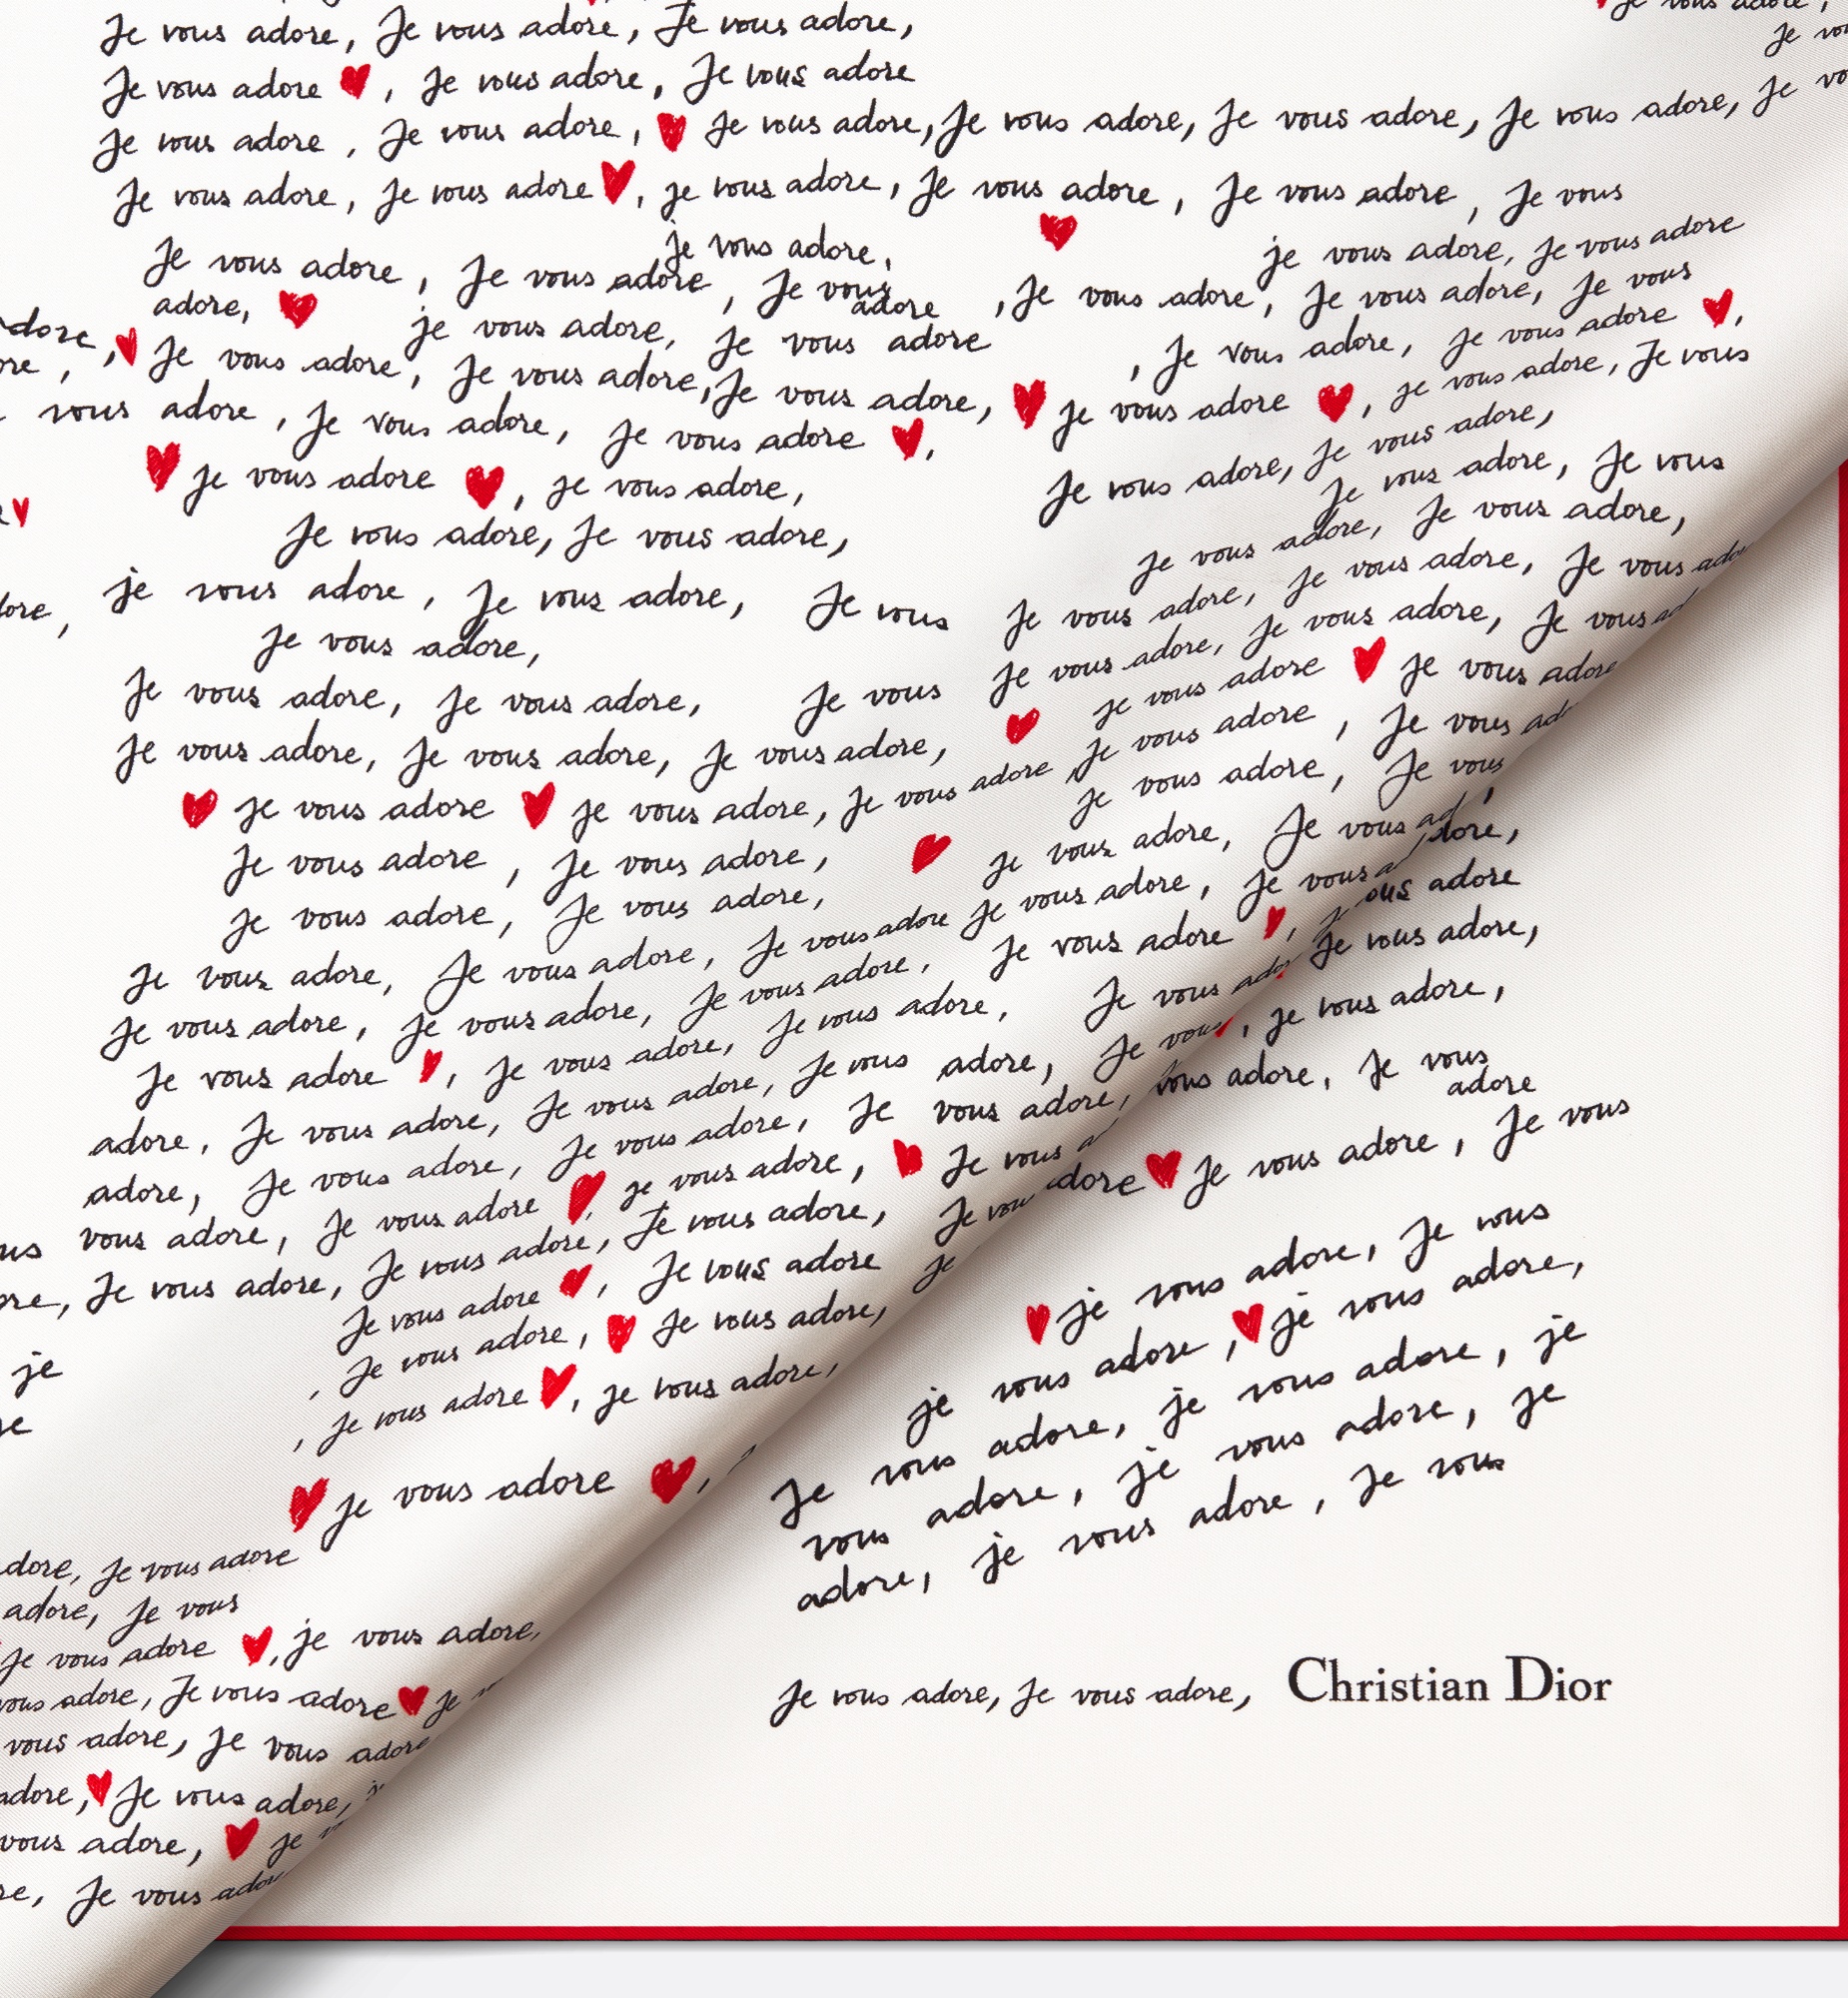 Je vous adore, Je vous adore, Je vous adore,
Je vous adore, Je vous adore, Je vous adore
je vous adore,
Je vous
Je vous adore, Je vous adore, Je vous adore, Je vous adore, Je vous adore, Je vous adore, Je
Je vous adore, Je vous adore, je vous adore, Je vous adore, Je vous adore, Je vous
je vous adore,
je vous adore, Je vous adore
Je vous adore, Je vous adore, Je vous adore
, Je vous adore, Je vous adore, Je vous
adore,
je vous adore, Je vous adore
, Je vous adore, Je vous adore,
adore, Je vous adore, Je vous adore, Je vous adore, Je vous adore, je vous adore, Je vous
vous adore, Je vous adore, Je vous adore,
Je vous adore, Je vous adore,
Je vous adore, je vous adore,
Je vous adore, Je vous
Je vous adore, Je vous adore,
Je vous adore, Je vous adore,
je vous adore, Je vous adore, Je vous
Je vous adore, Je vous adore, Je vous
Je vous adore,
Je vous adore, Je vous adore, Je vous
Je vous adore, Je vous adore, Je vous
je vous adore Je vous adore
Je vous adore, Je vous adore, Je vous adore,
Je vous adore je vous adore, Je vous adore, Je vous adore, Je vous
Je vous adore, Je vous adore,
je vous adore, Je vous
Je vous adore, Je vous adore,
je vous adore, Je vous
adore,
Je vous adore, Je vous adore, Je vous adore Je vous adore, Je vous
adore
Je vous adore, Je vous adore, Je vous adore,
Je vous adore,
Je vous adore,
Je vous adore, Je vous adore, Je vous adore,
Je vous
, je vous adore,
adore, Je vous adore, Je vous adore, Je vous adore, Je vous
vous adore, Je vous
adore
adore, Je vous adore, Je vous adore, Je vous adore,
vous adore, Je vous adore je vous adore, Je vous
adore Je vous adore, Je vous
Je vous adore, Je vous adore, Je vous adore, Je
Je vous adore, Je vous adore Je
, Je vous adore, Je vous adore,
, Je vous adore, je vous adore,
je
Je vous adore,
je vous adore, Je vous
je vous adore, je vous adore,
Je vous adore, je vous adore, je
vous adore, je vous adore, je
adore, je vous adore, Je vous
adore, Je vous adore
adore, Je vous
Je vous adore, je vous adore,
vous adore, Je vous adore Je
vous adore, Je vous adore
adore, Je vous adore,
vous adore, je
Je vous
Je vous adore, Je vous adore, Christian Dior